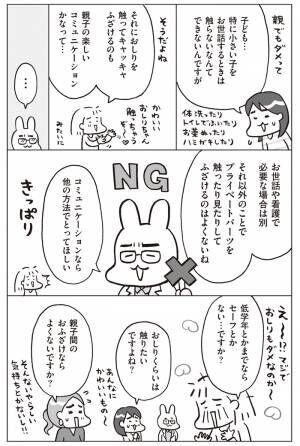 親でもダメって
子ども…
特に小さい子を
お世話するときは
触らないなんて
できないんですが
体洗ったり
トイレでふいたり
お薬ぬったり
ハミガキしたり
そうだよね
それにおしりを
触ってキャッキャ
ふざけるのも
親子の楽しい
コミュニケーション
かなって…
かわいい
おしりちゃん
触っちゃうぞ~♡
みたいに
…
お世話や看護で
必要な場合は別
それ以外のことで
プライベートパーツを
触ったり見たりして
ふざけるのはよくないね
NG
コミュニケーションなら
他の方法でとってほしい
きっぱり
え~!?マジで
おしりもダメなのか~
低学年とかまでなら
セーフとか
ない…ですか?
おしりくらいは
触りたい
ですよね?
あんなに
かわいいもの
親子間の
おふざけなら
よくないですか?
そんないやらしい
気持ちとかないし!!